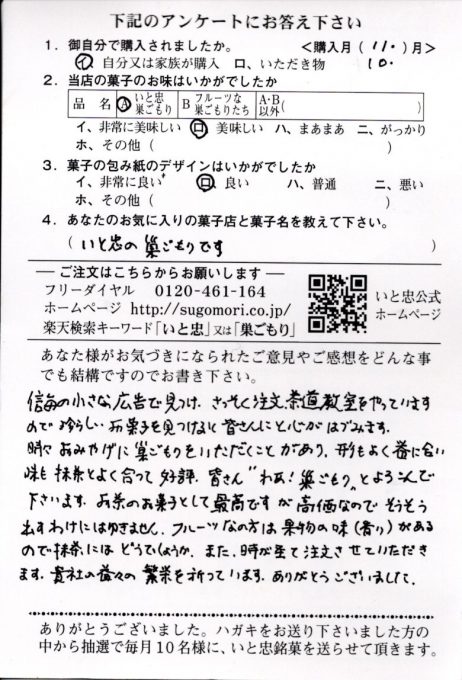 下記のアンケートにお答え下さい
1. 御自分で購入されましたか。 <購入月(11.)月>
イ、自分又は家族が購入 ロ、いただき物 10.
2. 当店の菓子のお味はいかがでしたか
品 名 A いと忠巣ごもり B フルーツな巣ごもりたち A・B以外( )
イ、非常に美味しい ロ、美味しい ハ、まあまあ ニ、がっかり
ホ、その他( )
3. 菓子の包み紙のデザインはいかがでしたか
イ、非常に良い ロ、良い ハ、普通 ニ、悪い
ホ、その他( )
4. あなたのお気に入りの菓子店と菓子名を教えて下さい。
(いと忠の巣ごもりです )
― ご注文はこちらからお願いします ―
フリーダイヤル 0120-461-164
ホームページ http://sugomori.co.jp/
楽天検索キーワード「いと忠」又は「巣ごもり」
いと忠公式
ホームページ
あなた様がお気づきになられたご意見やご感想をどんな事
でも結構ですのでお書き下さい。
信毎の小さな広告で見つけ、さっそく注文、茶道教室をやっています
ので珍らしいお菓子を見つけると皆さんにと心がはづみます。
時々おみやげに巣ごもりをいただくことがあり、形もよく番に合い
味も抹茶とよく合って好評。皆さん"わあ!巣ごもり"とよろこんで
下さいます。お茶のお菓子として最高ですが高価なのでそうそう
出すわけにはゆきません。フルーツなの方は果物の味(香り)がある
ので抹茶にはどうでしょうか。また、時が来て注文させていただき
ます。貴社の益々の繁栄を祈っています。ありがとうございました。
ありがとうございました。ハガキをお送り下さいました方の
中から抽選で毎月10名様に、いと忠銘菓を送らせて頂きます。